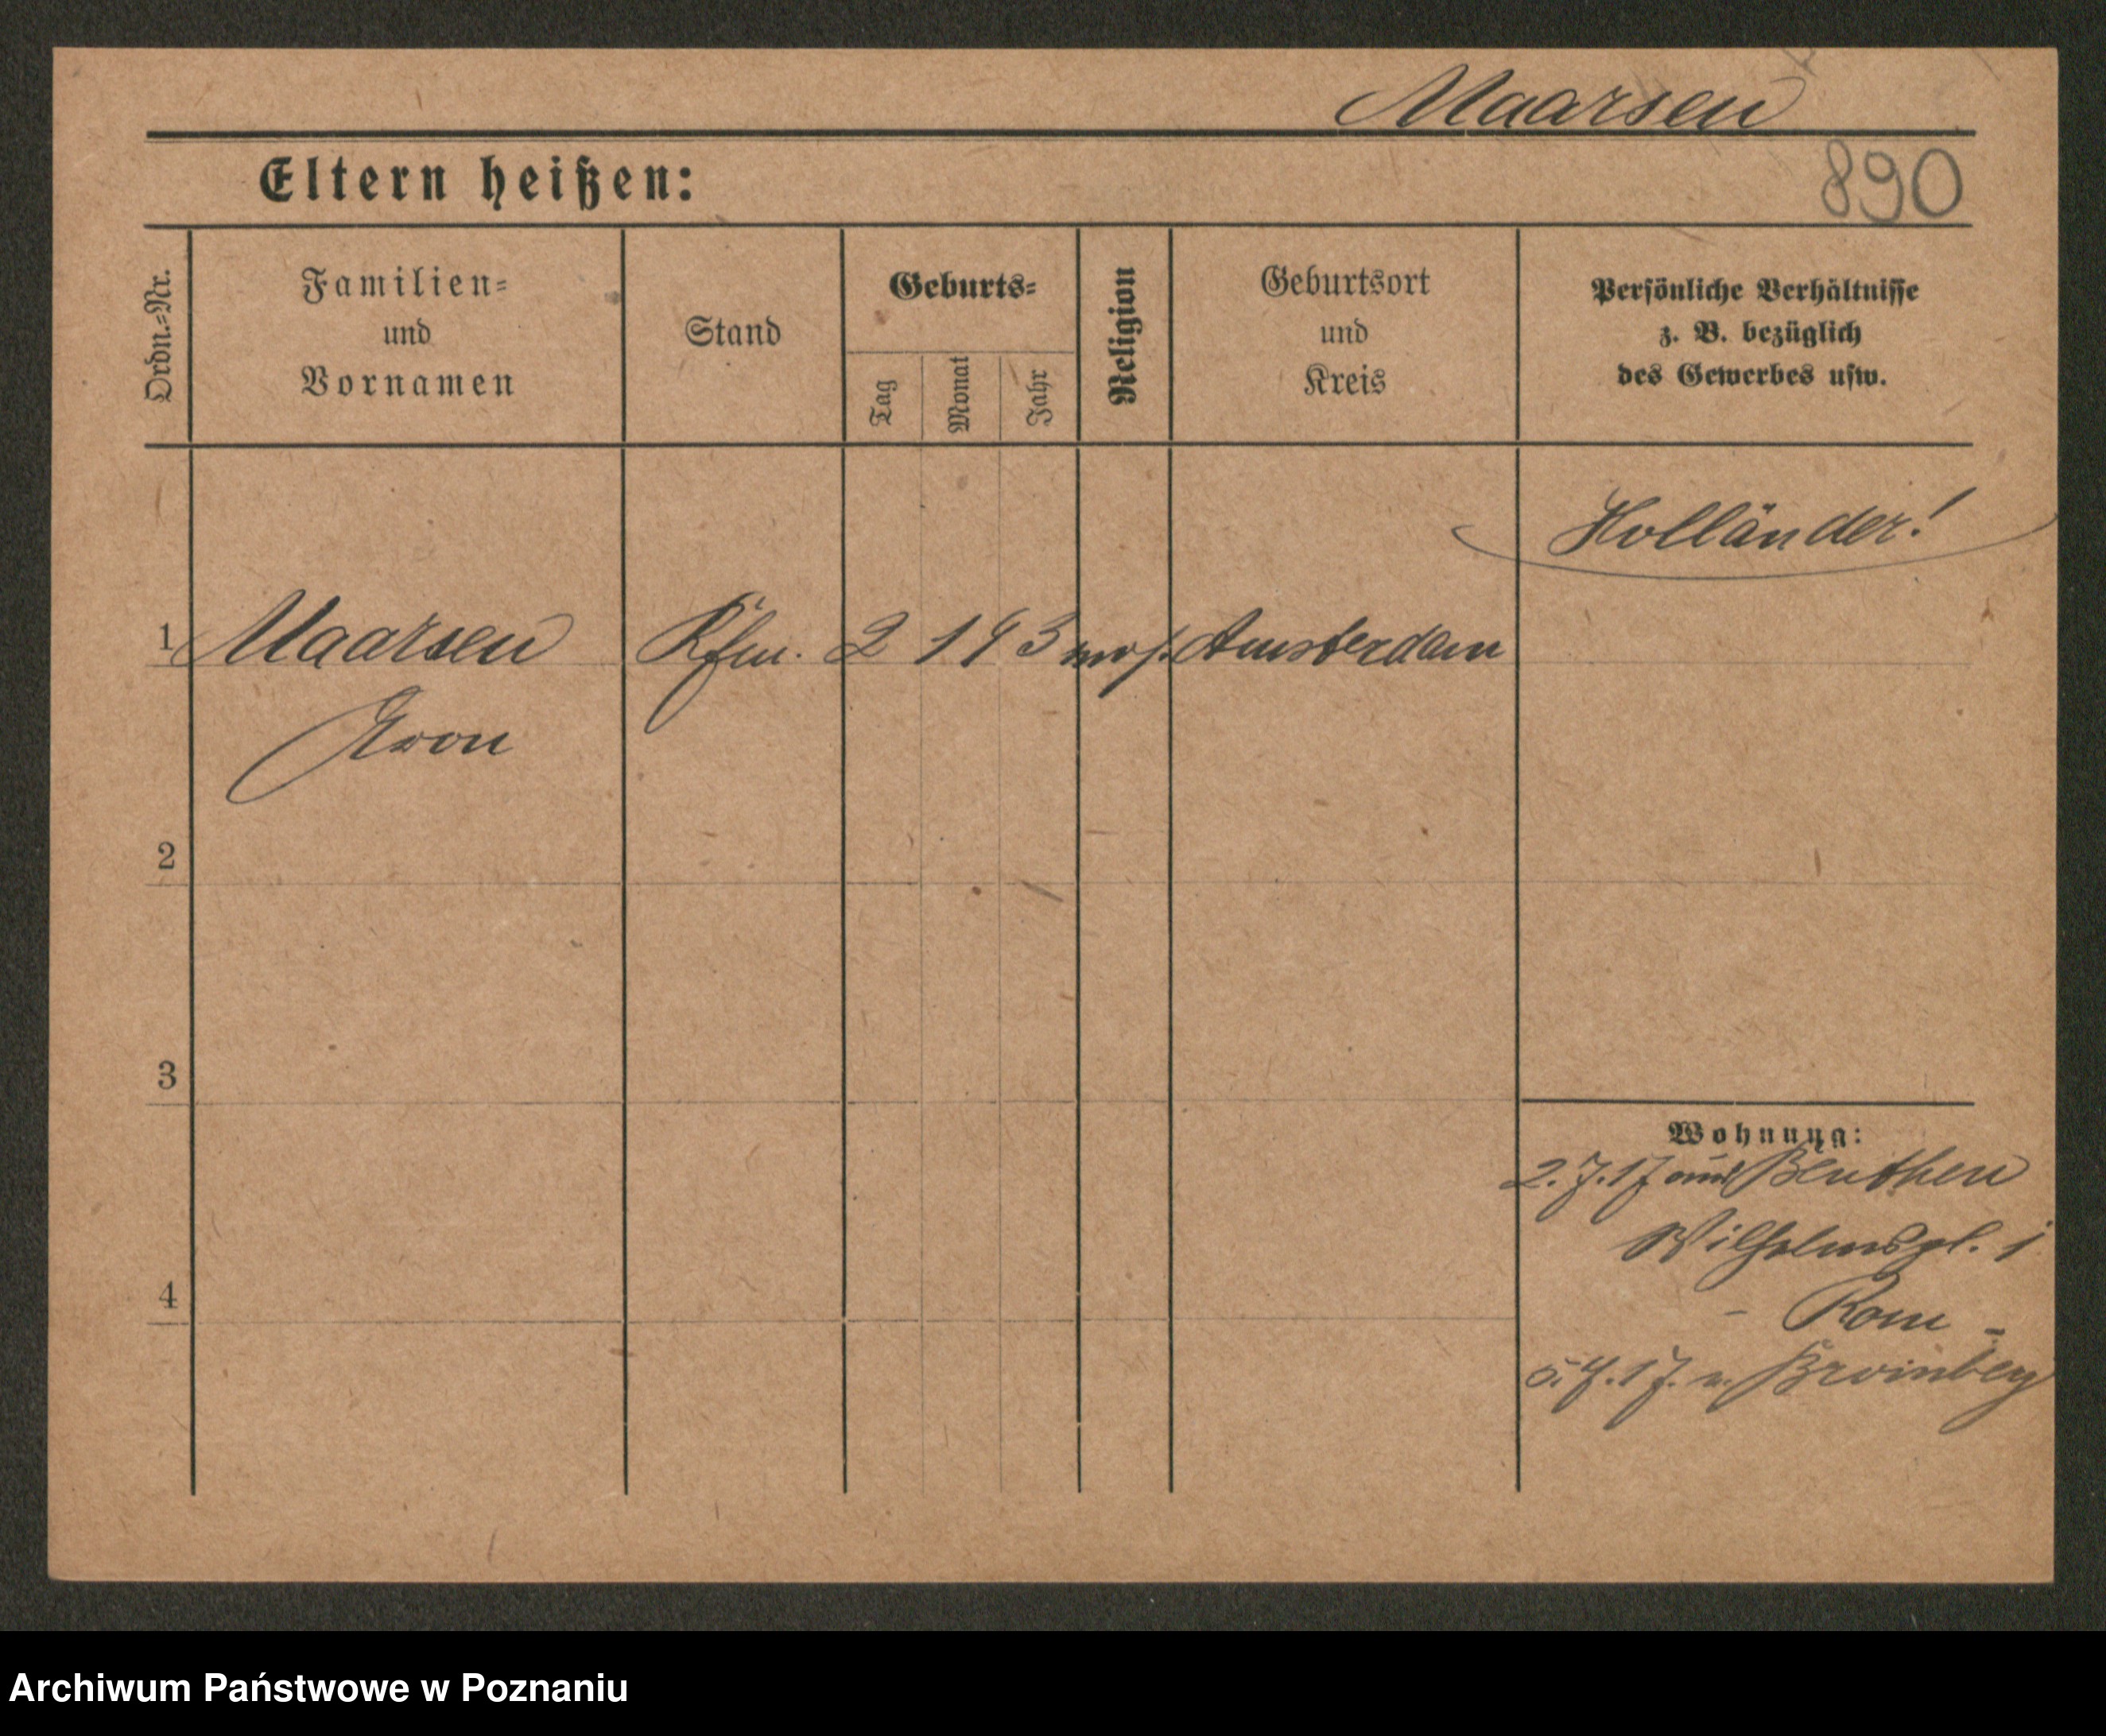 Maarsen
Eltern heißen:
890
Ordn.-Nr.
Familien-
und
Vornamen
Stand
Geburts-
Tag
Monat
Jahr
Religion
Geburtsort
und
Kreis
Persönliche Verhältnisse
z. B. bezüglich
des Gewerbes usw.
Holländer!
1 Maarsen Kfm. 2 1 93 mos. Amsterdam
2
3
4
Wohnung:
2.7.17 aus Beuthen
Wilhelmspl. 1
- Rom -
5.7.17. n. Bromberg
Archiwum Państwowe w Poznaniu